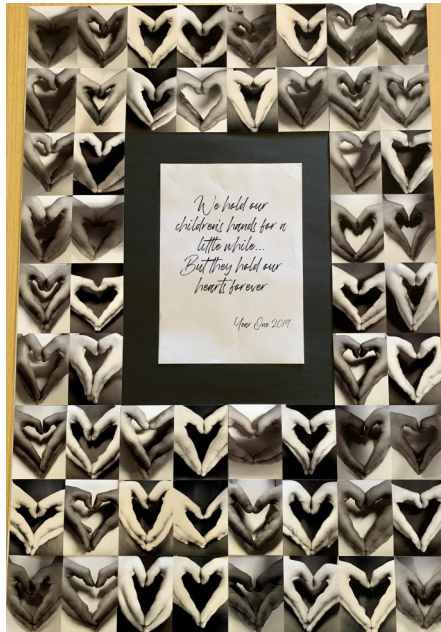 We hold our
children's hands for a
little while...
But they hold our
hearts forever
Year One 2019